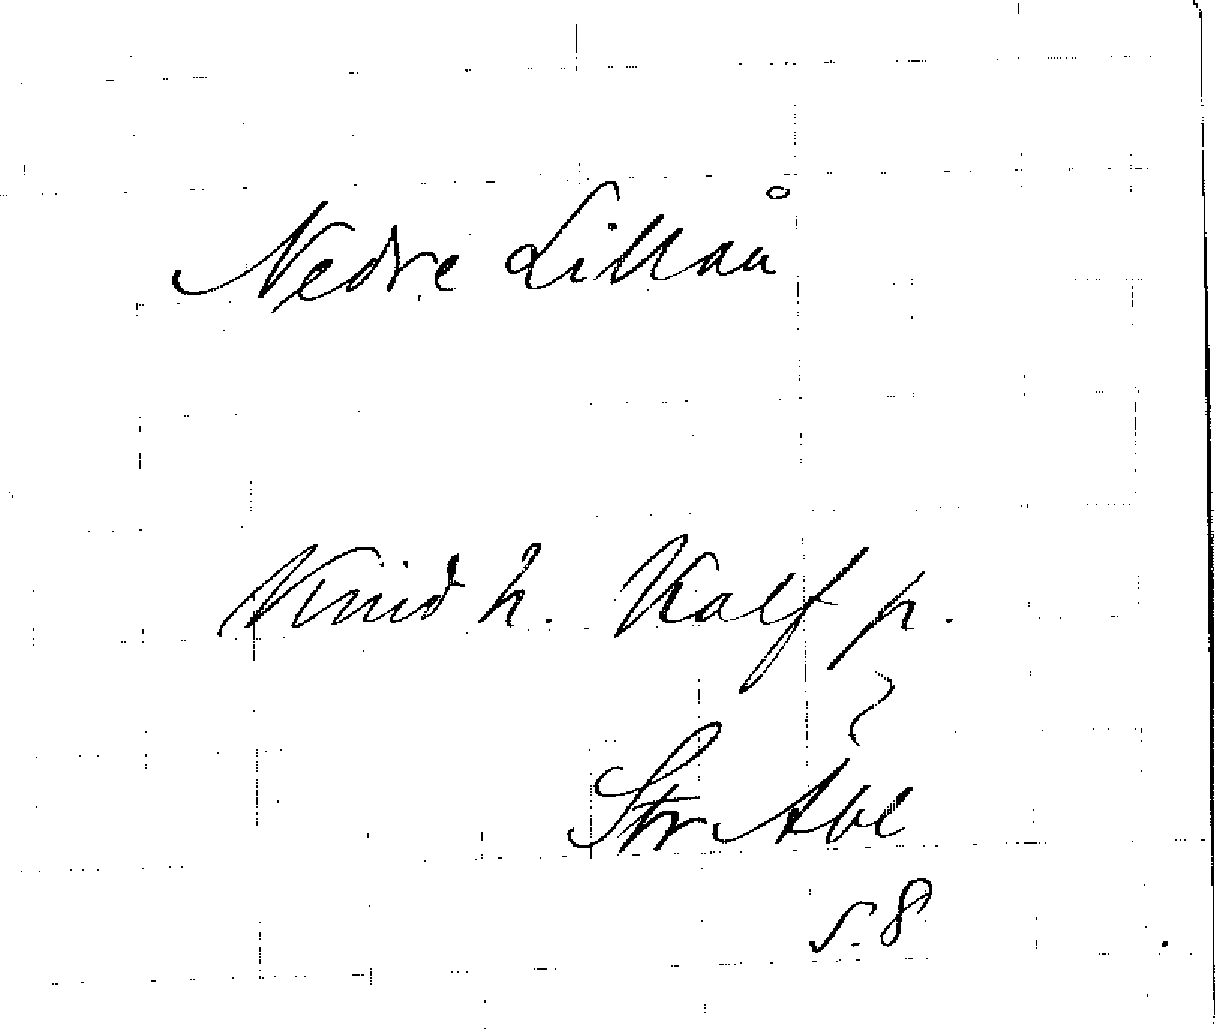 Nedre Lillån
Knid h. Kalf p.
Str Abl
s. 8